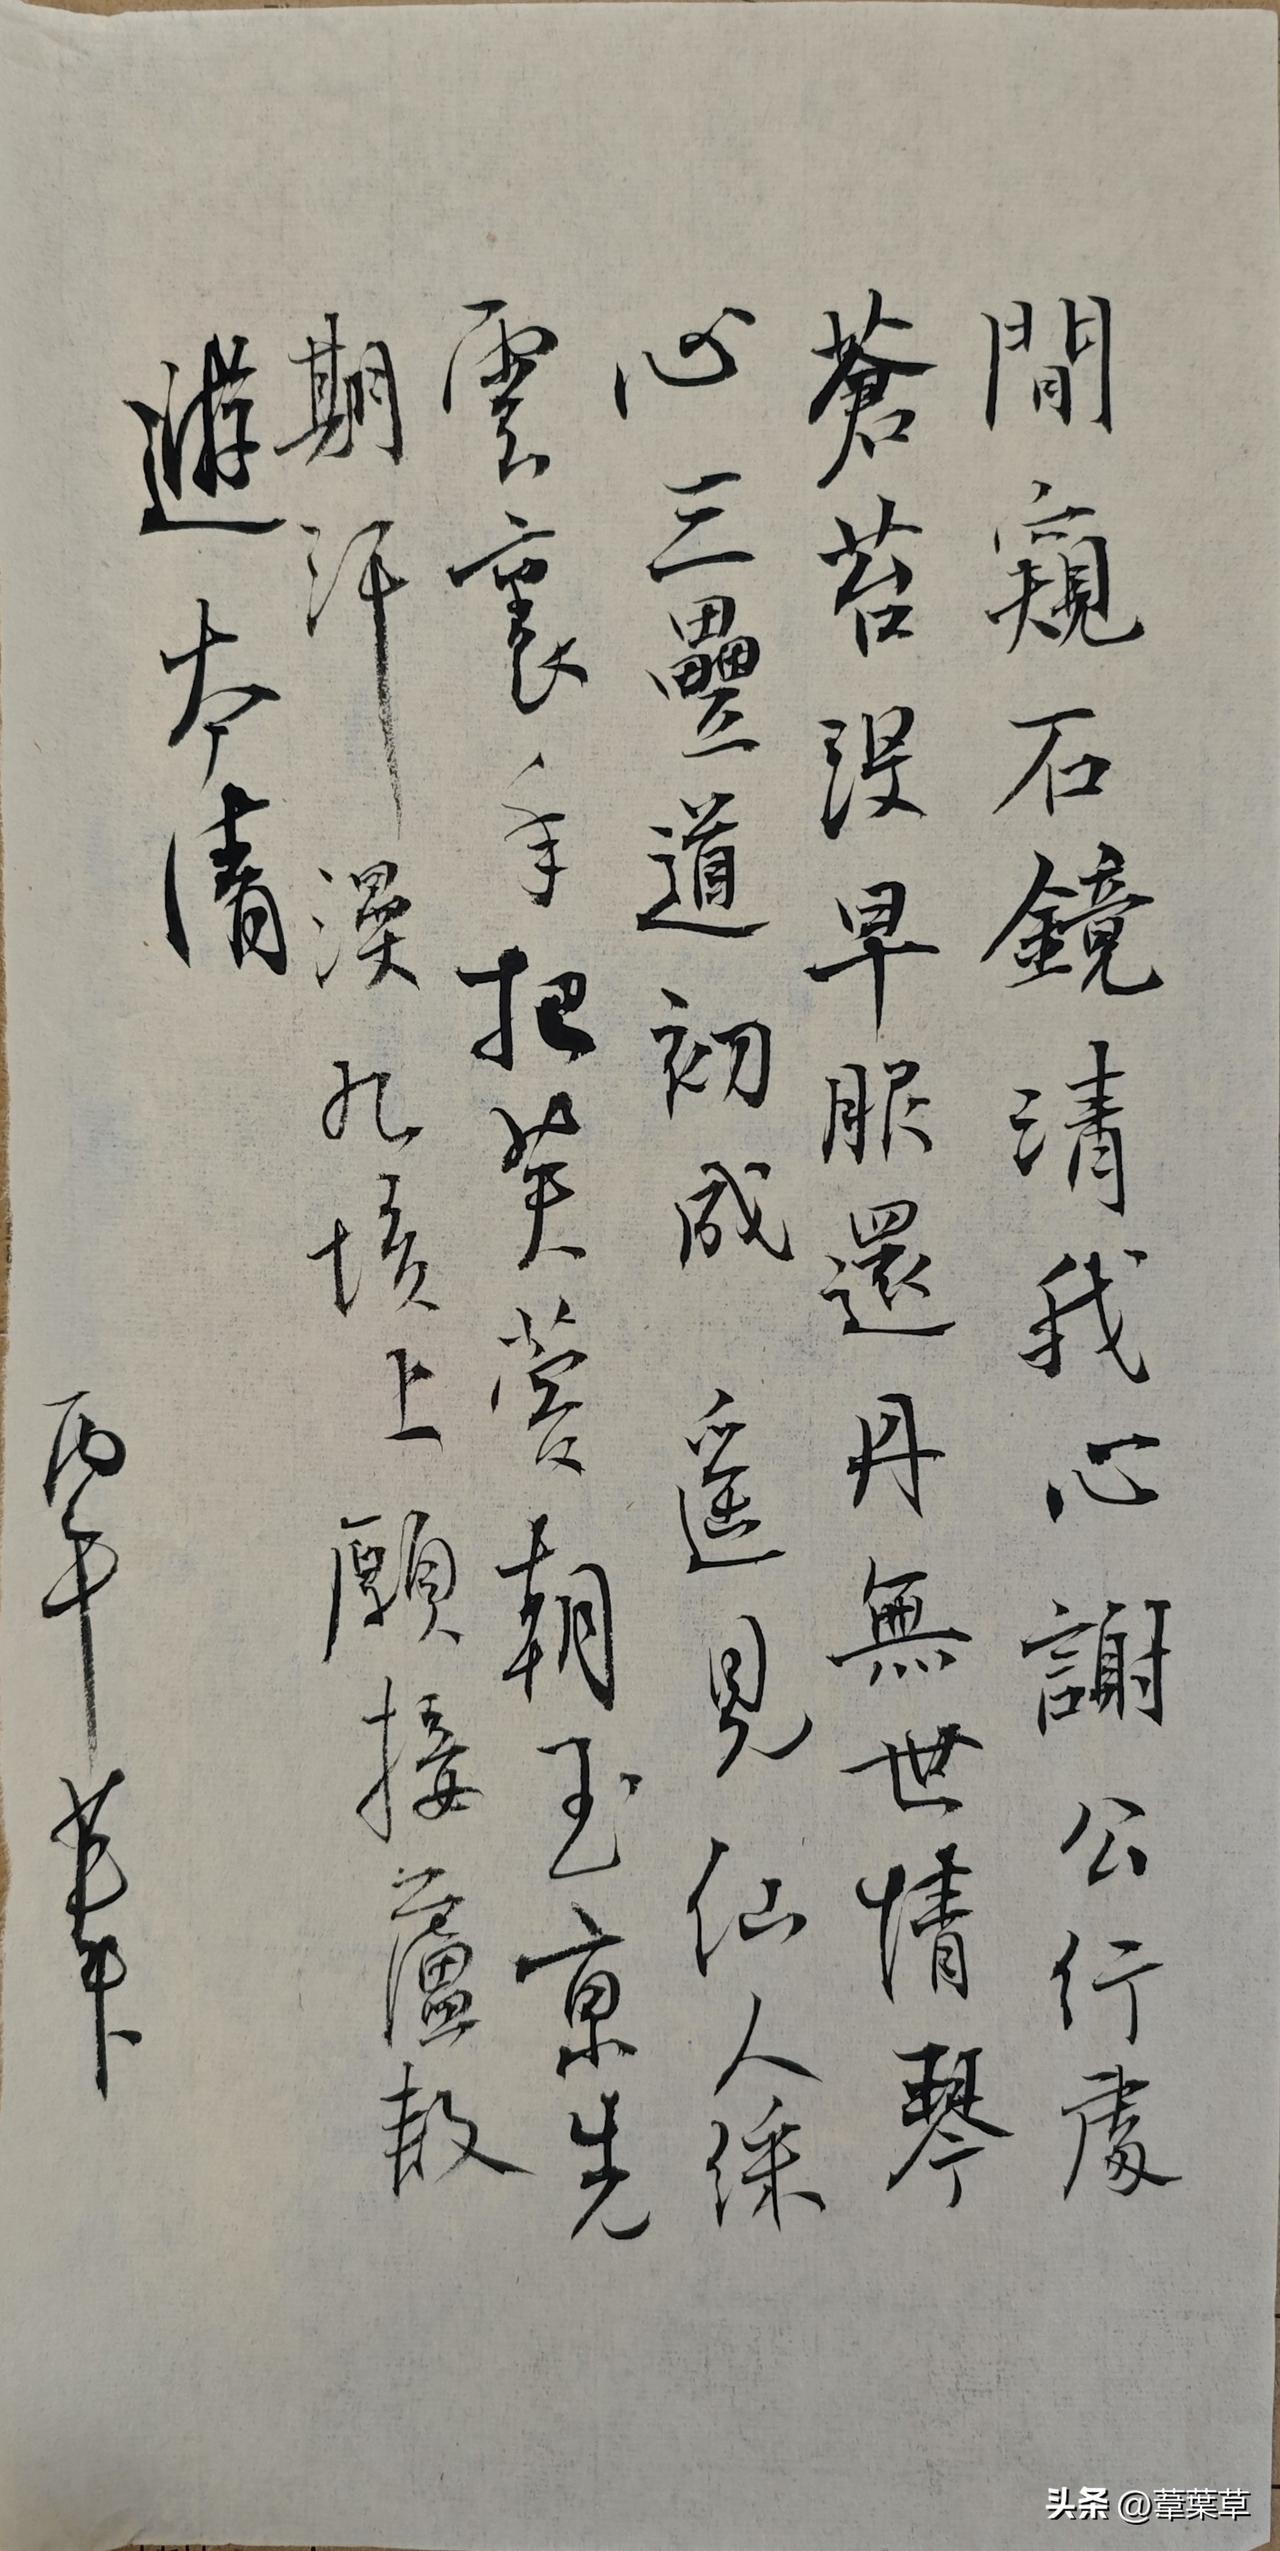 閒窺石鏡清我心謝公行處
蒼苔沒早服還丹無世情琴
心三疊道初成遥見仙人綵
雲裏手把芙蓉朝玉京先
期汗漫九垓上願接盧敖
遊太清
丙午
头条 @葦葉草